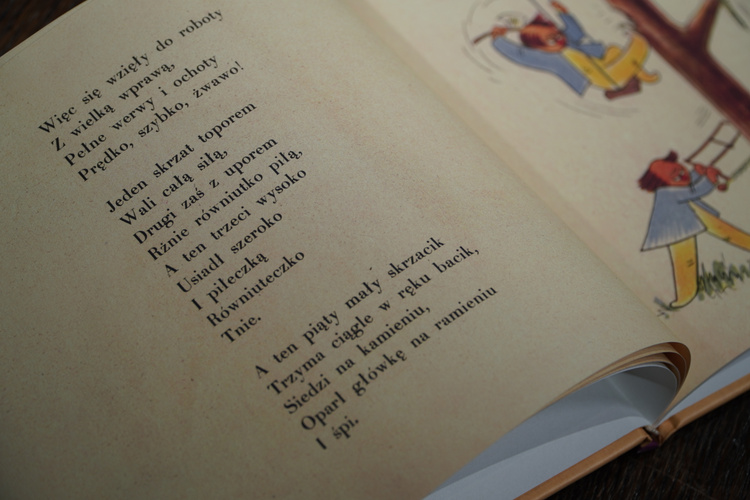 Więc się wzięły do roboty
Z wielką wprawą,
Pełne werwy i ochoty
Prędko, szybko, żwawo!
Jeden skrzat toporem
Wali całą siłą,
Drugi zaś z uporem
Rżnie równiutko piłą,
A ten trzeci wysoko
Usiadł szeroko
I piłeczką
Równiuteczko
Tnie.
A ten piąty mały skrzacik
Trzyma ciągle w ręku bacik,
Siedzi na kamieniu,
Oparł główkę na ramieniu
I śpi.